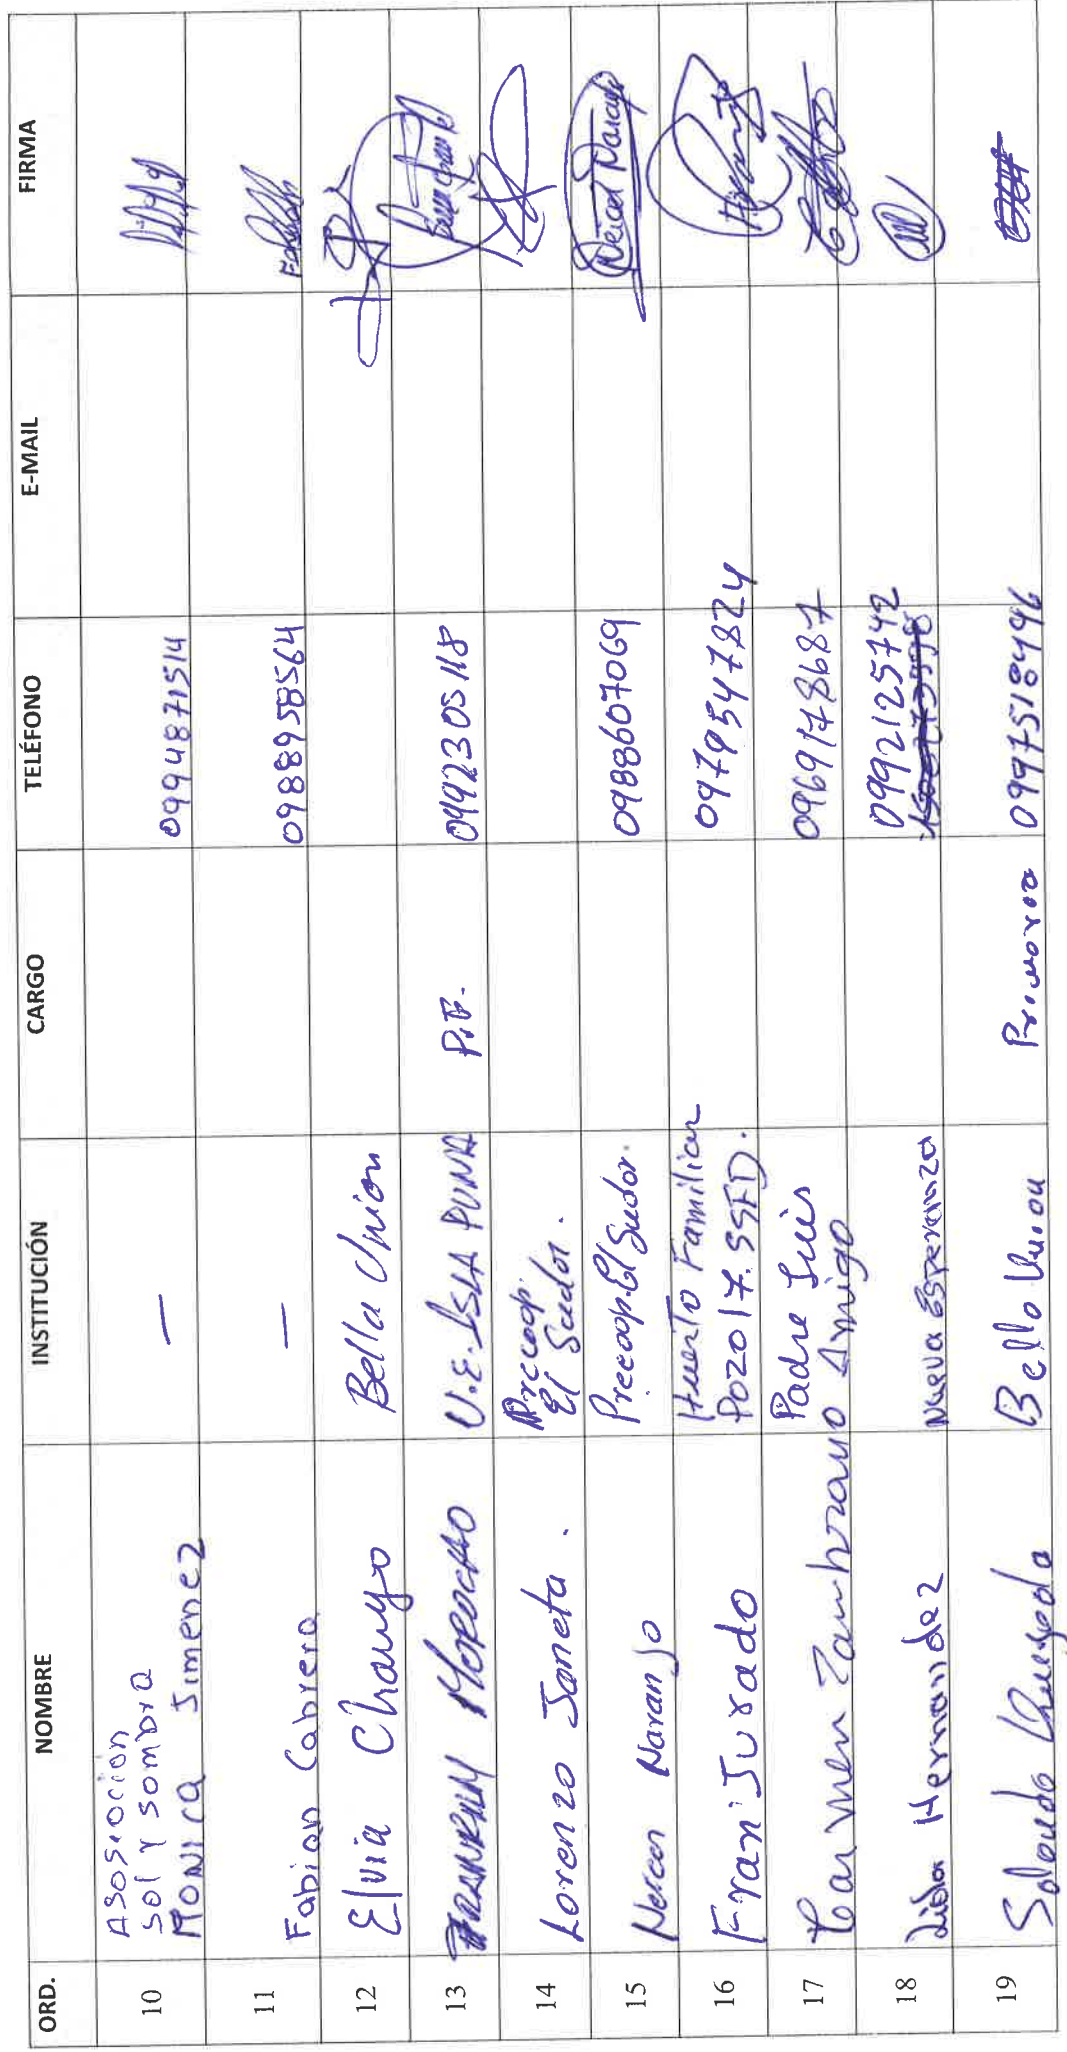 ORD. NOMBRE INSTITUCIÓN CARGO TELÉFONO E-MAIL FIRMA
10 Asosiocion
sol y sombra
MONICA Jimenez — 0994871514
11 Fabian Cabrera — 0988958564
12 Elvia Chango Bella Union
13 FRANKLIN MOROCHO U.E. ISLA PUNA P.F. 0992305118
14 Lorenzo Janeta . Precoop.
El Sudor.
15 Nercen Naranjo Precoop. El Sudor. 0988607069
16 Fran Jurado Huerto Familiar
Pozo 17. SSFD. 0979547824
17 Carmen Zambrano Padre Luis
Amigo 0969178687
18 Lidia Hernandez Nueva Esperanza 0992125742
19 Bello 0997518496